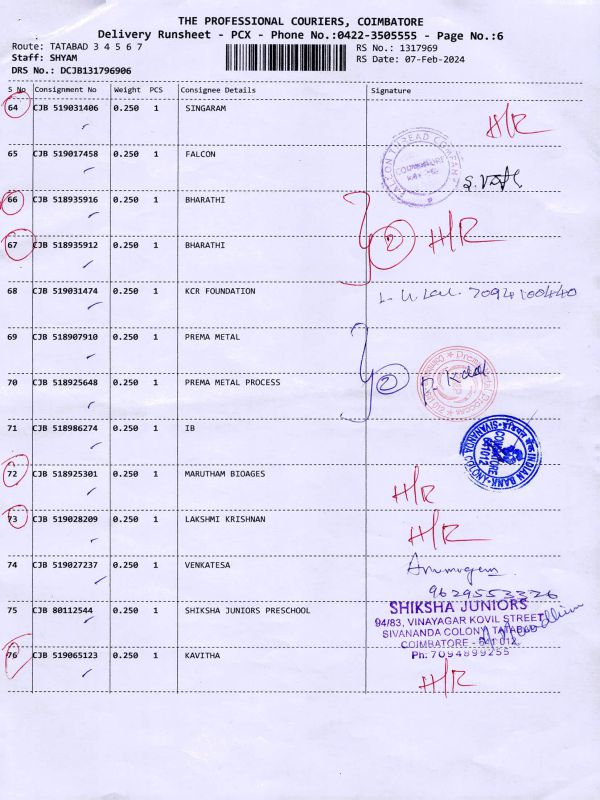 THE PROFESSIONAL COURIERS, COIMBATORE
Delivery Runsheet - PCX - Phone No.:0422-3505555 - Page No.:6
Route: TATABAD 3 4 5 6 7
RS No.: 1317969
Staff: SHYAM
RS Date: 07-Feb-2024
DRS No.: DCJB131796906
S No Consignment No Weight PCS Consignee Details Signature
64 CJB 519031406 0.250 1 SINGARAM H/R
65 CJB 519017458 0.250 1 FALCON
FALCON THREAD COMPANY
COIMBATORE
66 CJB 518935916 0.250 1 BHARATHI
67 CJB 518935912 0.250 1 BHARATHI 2 H/R
68 CJB 519031474 0.250 1 KCR FOUNDATION 7094100440
69 CJB 518907910 0.250 1 PREMA METAL
70 CJB 518925648 0.250 1 PREMA METAL PROCESS 2
71 CJB 518986274 0.250 1 IB
INDIAN BANK
SIVANANDA COLONY
COIMBATORE
641012
72 CJB 518925301 0.250 1 MARUTHAM BIOAGES H/R
73 CJB 519028209 0.250 1 LAKSHMI KRISHNAN H/R
74 CJB 519027237 0.250 1 VENKATESA Arumugam
9629553326
75 CJB 80112544 0.250 1 SHIKSHA JUNIORS PRESCHOOL
SHIKSHA JUNIORS
94/83, VINAYAGAR KOVIL STREET,
SIVANANDA COLONY, TATABAD
COIMBATORE - 641 012.
Ph: 7094899255
76 CJB 519065123 0.250 1 KAVITHA H/R